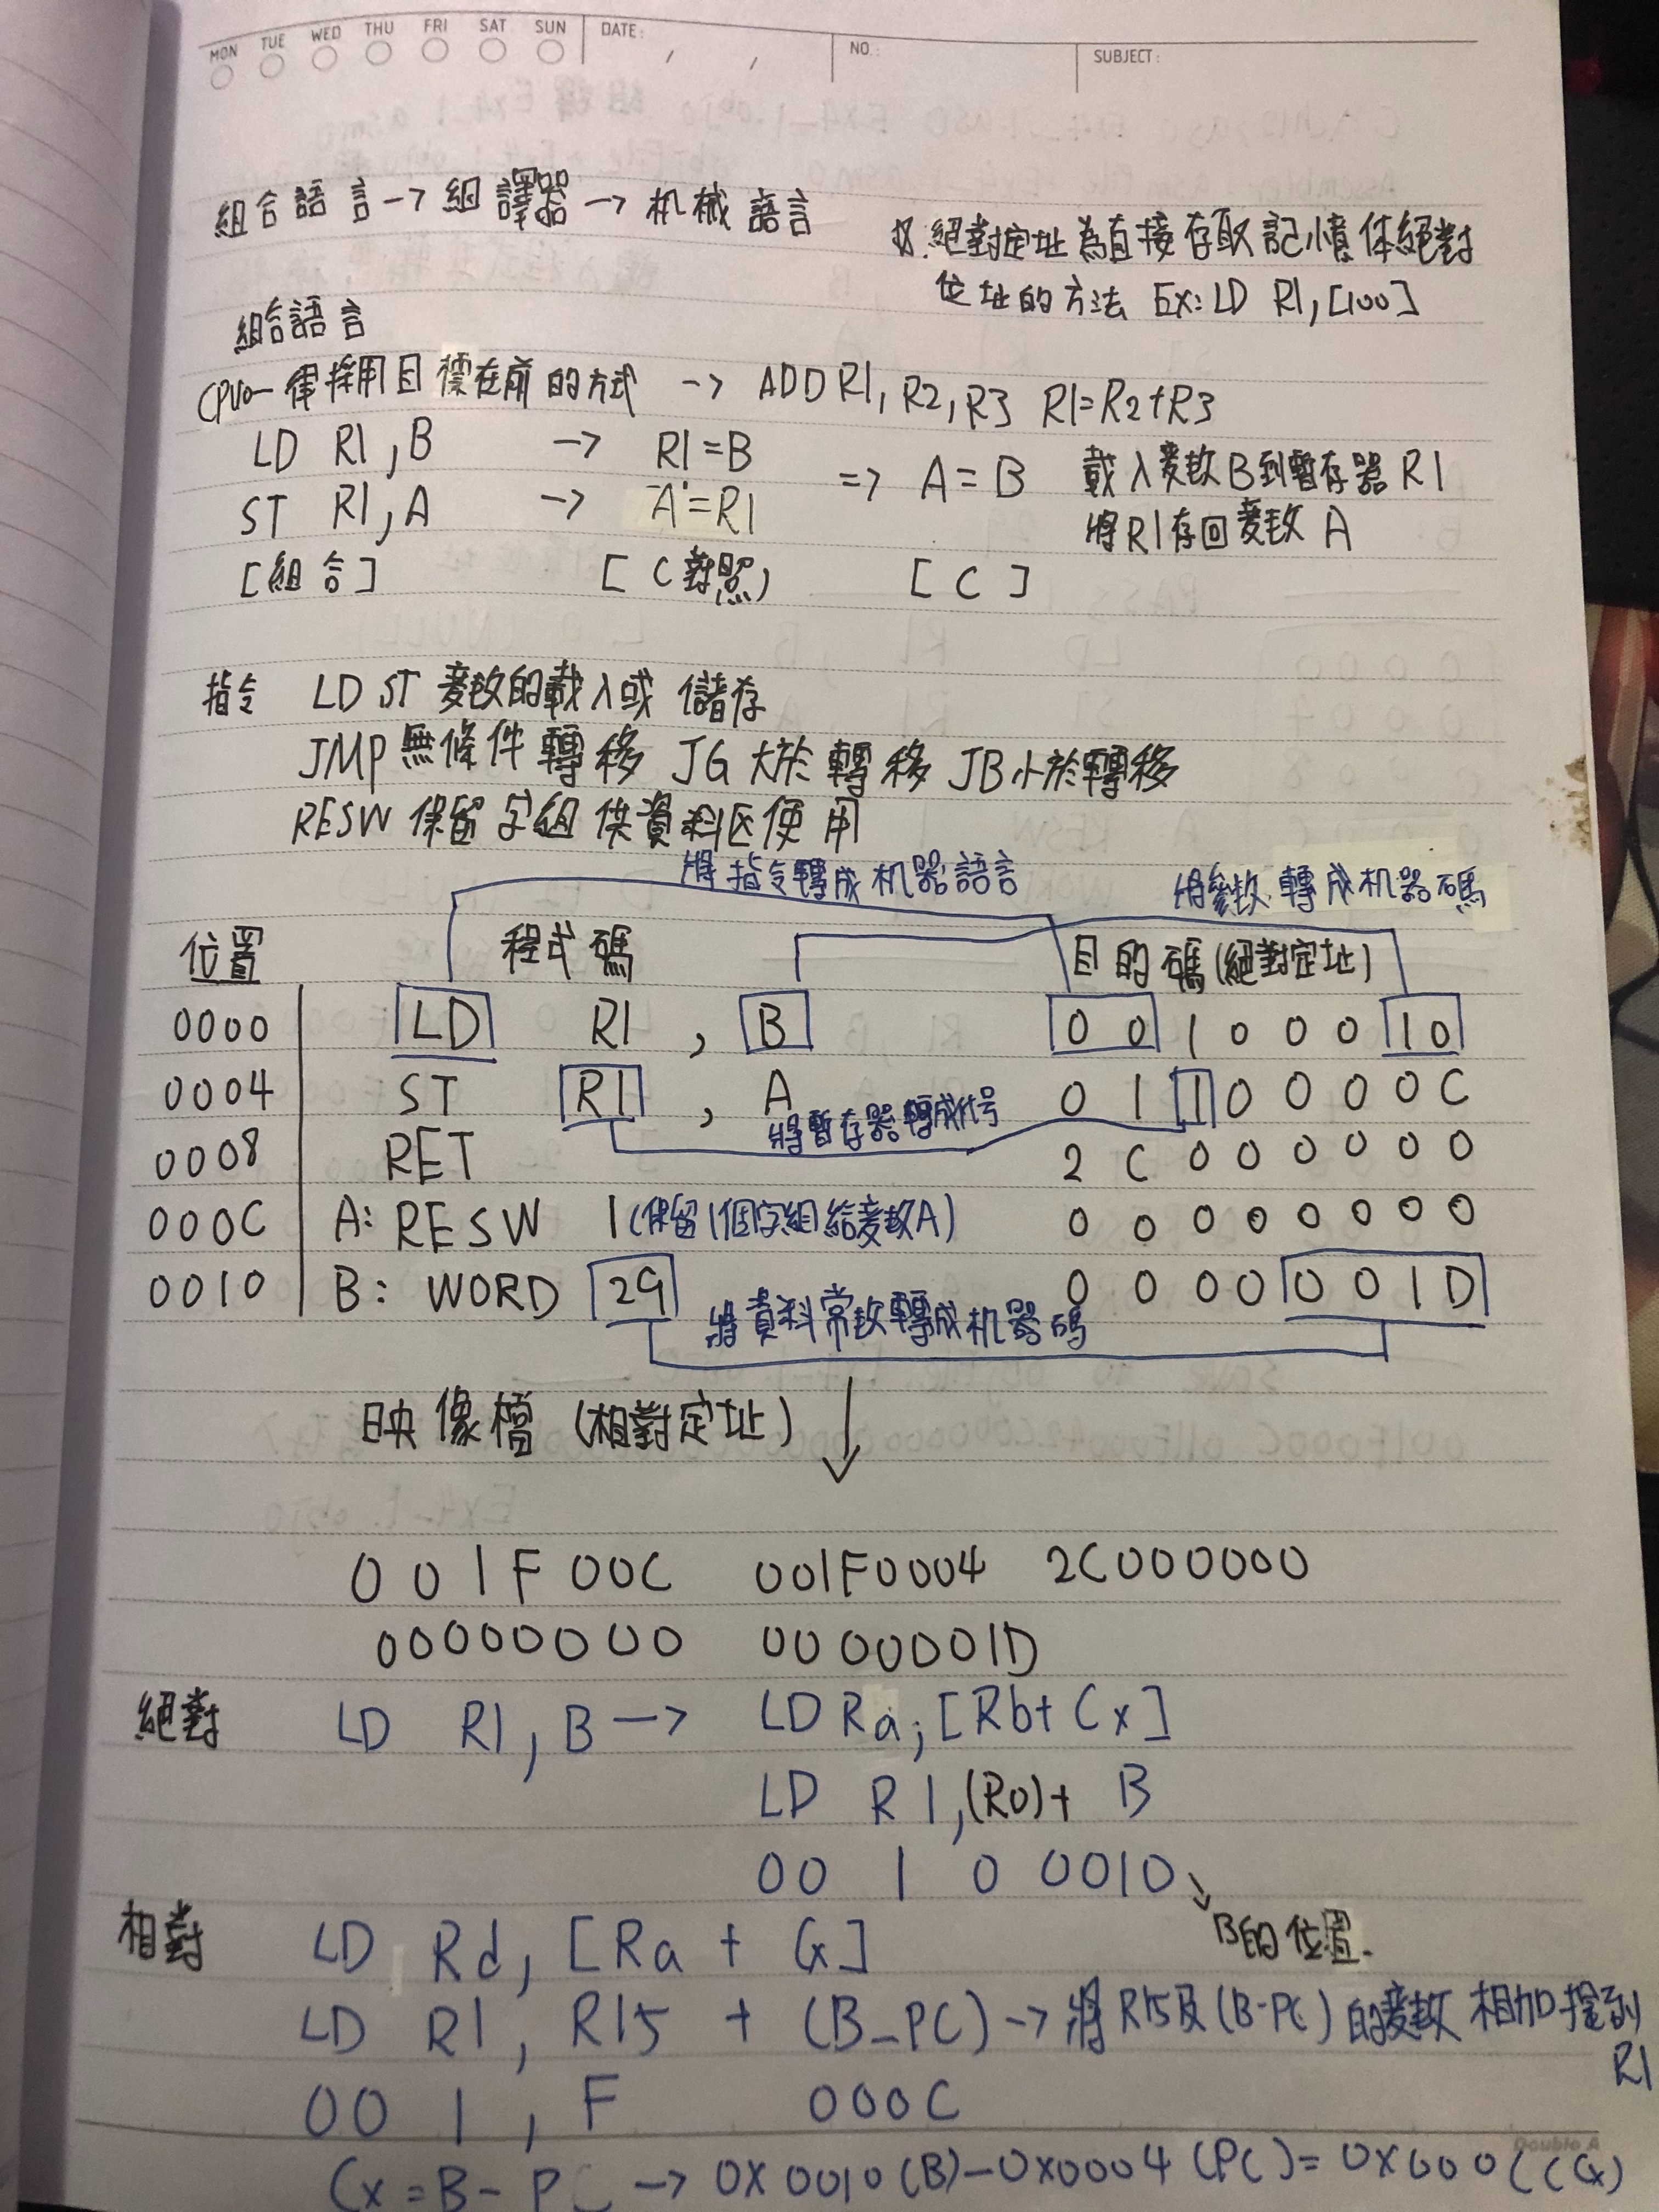 MON TUE WED THU FRI SAT SUN DATE: / / NO.: SUBJECT:
組合語言→組譯器→机械語言
絕對定址為直接存取記憶体絕對
位址的方法 EX: LD R1,[100]
組合語言
CPU0一律採用目標在前的方式 → ADD R1, R2, R3 R1=R2+R3
LD R1,B → R1=B => A=B 載入变数B到暫存器R1
ST R1,A → A=R1 將R1存回变数A
[組合] [C對照) [C]
指令 LD ST 变数的載入或儲存
JMP無條件轉移 JG大於轉移 JB小於轉移
RESW 保留字組供資料区使用
將指令轉成机器語言 將參数轉成机器碼
位置 程式碼 目的碼(絕對定址)
0000 LD R1 , B 0 0 1 0 0 0 1 0
0004 ST R1 , A 0 1 1 0 0 0 0 C
將暫存器轉成代号
0008 RET 2 C 0 0 0 0 0 0
000C A: RESW 1(保留1個字組給变数A) 0 0 0 0 0 0 0 0
0010 B: WORD 29 0 0 0 0 0 0 1 D
將資料常数轉成机器碼
映像檔(相對定址) ↓
0 0 1 F 00C 001F0004 2C000000
00000000 0000001D
絕對 LD R1,B → LD Ra,[Rb+Cx]
LD R1,(R0)+ B
00 1 0 0010
B的位置.
相對 LD Rd,[Ra + Cx]
LD R1, R15 + (B-PC) → 將R15及(B-PC)的变数相加擺到
R1
00 1, F 000C
Double A
Cx=B-PC → 0X0010(B)-0X0004(PC)=0X000C(Cx)